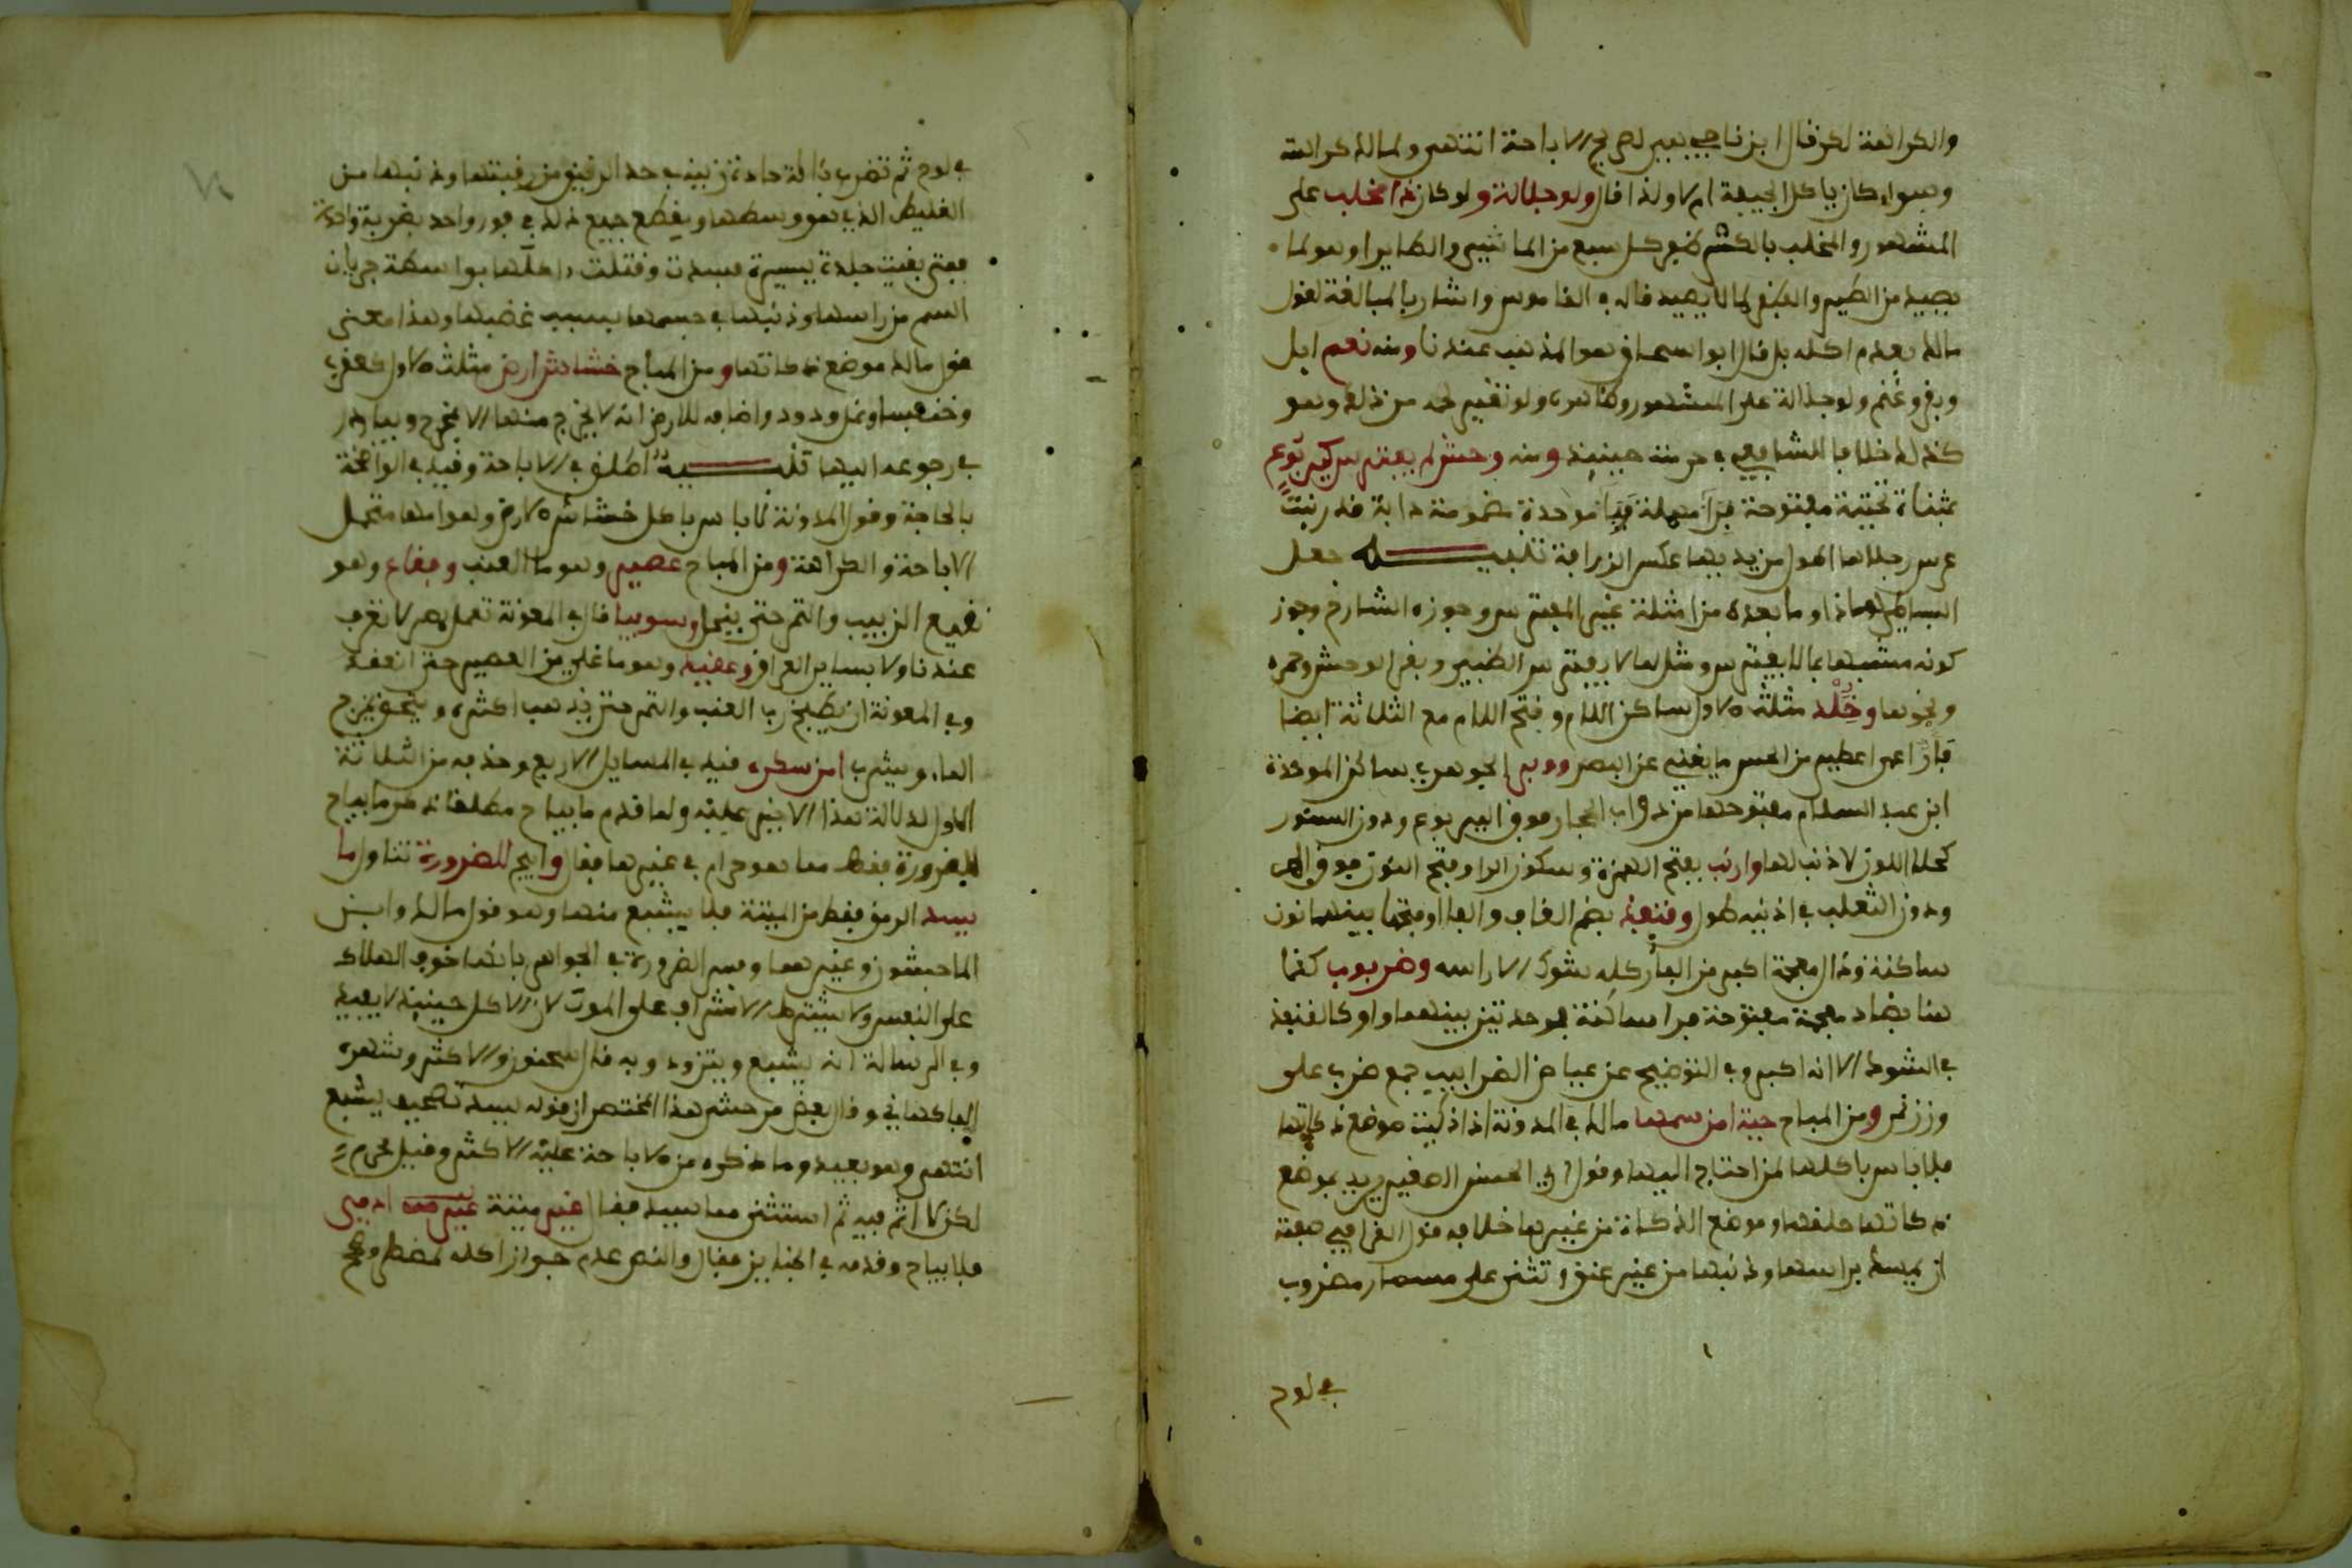 والكراهة لكن قال ابن ناجي يعبر لصريح الاباحة انتهى ولمالك كراهته
وسواء كان ياكل الجيفة ام لا ولذا قال ولو جلالة ولو كان ذا مخلب على
المشهور والمخلب بالكسر ظفر كل سبع من الماشي والطاير او هو لما
يصيد من الطير والظفر لما لا يصيد قاله في القاموس واشار بالمبالغة لقول
مالك بعدم اكله بل قال ابو اسحاق هو المذهب عندنا ومنه نعم ابل
وبقر وغنم ولو جلالة على المشهور وظاهره ولو تغير لحمه من ذلك وهو
كذلك خلافا للشافعي في حرمته حينيذ ومنه وحش لم يفترس كيربوع
بمثناة تحتية مفتوحة فرا مهملة فبا موحدة مضمومة دابة قدر بنت
عرس رجلاها اطول من يديها عكس الزرافة تنبيه جعل
البساطي هاذا وما بعده من امثلة غير المفترس وجوزه الشارح وجوز
كونه مشبها بما لا يفترس ومثلها لا يفترس الظبي وبقر الوحش وحمره
ونحوها وخلد مثلث الاول ساكن اللام وفتح اللام مع الثلاثة ايضا
فار اعمى اعطي من الحس ما يغني عن البصر ووبر الجوهري بسائر الموحدة
ابن عبد السلام مفتوحها من دواب الحجاز فوق اليربوع ودون السنور
كحلا اللون لا ذنب لها وارنب بفتح الهمزة وسكون الرا وفتح النون فوق الهر
ودون الثعلب في اذنيه طول وقنفذ بضم القاف والفا او فتحها بينهما نون
ساكنة وذال معجمة اكبر من الفار كله شوك الا راسه وضربوب كذا
هنا بضاد معجمة مفتوحة فرا ساكنة فموحدتين بينهما واو كالقنفذ
في الشوك الا انه اكبر وفي التوضيح عن عياض الضرابيب جمع ضرب على
وزن نمر ومن المباح حية امن سمها مالك في المدونة اذا ذكيت موضع ذكاتها
فلا باس باكلها لمن احتاج اليها وقول ابي الحسن الصغير يريد بموضع
ذكاتها حلقها وموضع الذكاة من غيرها خلافه قول القرافي صفة
ان يمسك براسها وذنبها من غير عنق وتثنى على مسمار مضروب
في لوح
في لوح ثم تضرب بالة حادة رزينة في حد الرقيق من رقبتها وذنبها من
الغليظ الذي هو وسطها ويقطع جميع ذلك في فور واحد بضربة واحدة
فمتى بقيت جلدة يسيرة فسدت وقتلت اكلها بواسطة جريان
السم من راسها وذنبها في جسمها بسبب غضبها وهذا معنى
قول مالك موضع ذكاتها ومن المباح خشاش ارض مثلث الاول كعقرب
وخنفسا ونمل ودود واضافه للارض لانه لا يخرج منها الا بمخرج ويبادر
في رجوعه اليها تنبيه اطلق في الاباحة وقيد في الواضحة
بالحاجة وقول المدونة لا باس باكل خشاش الارض وهوامها محتمل
الاباحة والكراهة ومن المباح عصير وهو ما العنب وفقاع وهو
نقيع الزبيب والتمر حتى ينحل وسوبيا قال في المعونة تعمل بمصر لا تعرف
عندنا ولا بساير العراق وعقيد وهو ما غلي من العصير حتى انعقد
وفي المعونة ان يطبخ رب العنب والتمر حتى يذهب اكثره ويخثر ويمزج
الما ويشرب امن سكره قيد في المسايل الاربع وحذفه من الثلاثة
الاول لدلالة هذا الاخير عليه ولما قدم ما يباح مطلقا ذكر ما يباح
للضرورة فقط مما هو حرام في غيرها فقال وابيح للضرورة تناول ما
يسد الرمق فقط من الميتة فلا يشبع منها وهو قول مالك وابن
الماجشون وغيرهما وفسر الضرورة في الجواهر بانها خوف الهلاك
على النفس ولا يشترط الاشراف على الموت لان الاكل حينيذ لا يفيد
وفي الرسالة انه يشبع ويتزود وبه قال سحنون والاكثر وشهره
الفاكهاني وقال بعض من حشى هذا المختصر ان قوله يسد تصحيف يشبع
انتهى وهو بعيد وما ذكره من الاباحة عليه الاكثر وقيل يحرم
لكن لا اثم فيه ثم استثنى مما يسد فقال غير ميتة غير ادمي
فلا يباح وقدمه في الجنايز فقال والنص عدم جواز اكله لمضطر وصحح